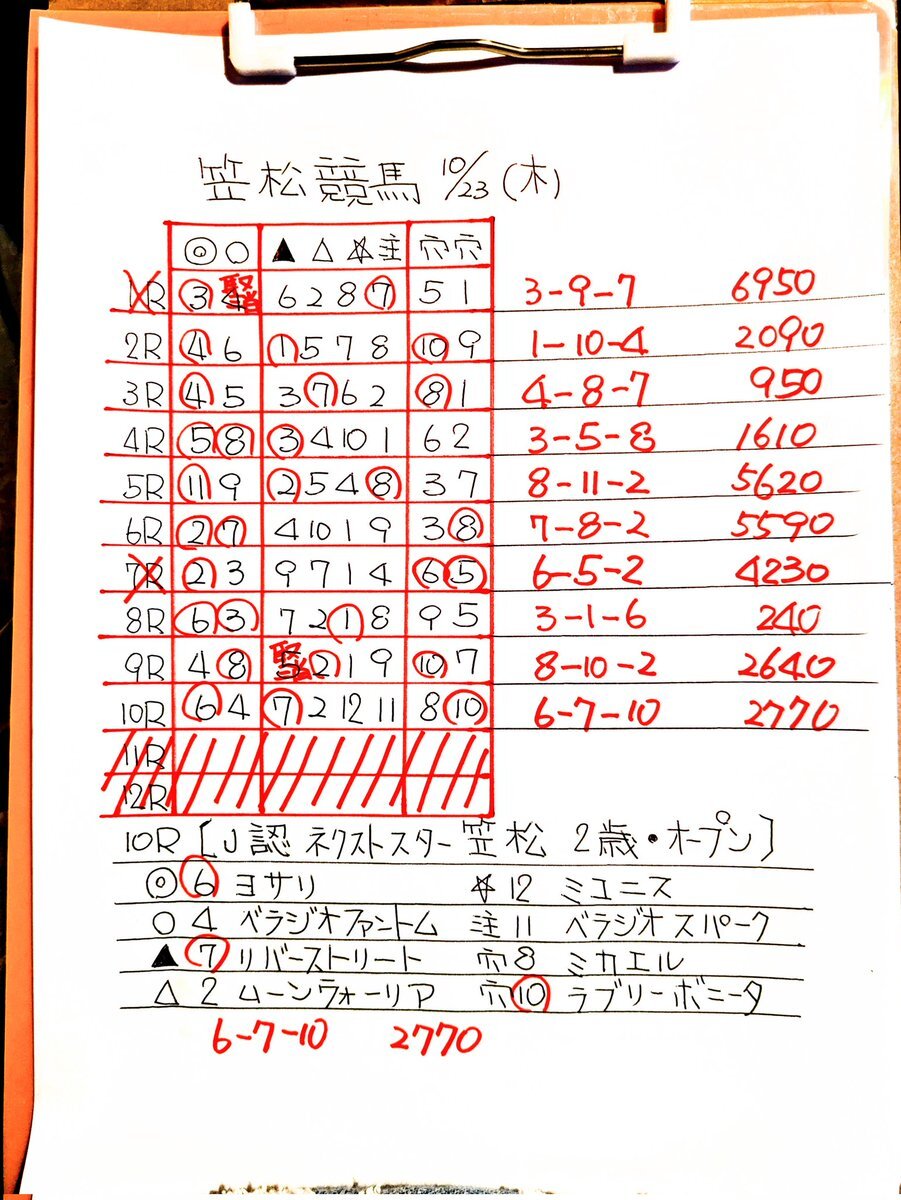 笠松競馬 10/23(木)
◎ ○ ▲ △ ☆ 注 穴 穴
1R 3 4 6 2 8 7 5 1 3-9-7 6950
2R 4 6 1 5 7 8 10 9 1-10-4 2090
3R 4 5 3 7 6 2 8 1 4-8-7 950
4R 5 8 3 4 10 1 6 2 3-5-8 1610
5R 11 9 2 5 4 8 3 7 8-11-2 5620
6R 2 7 4 10 1 9 3 8 7-8-2 5590
7R 2 3 9 7 1 4 6 5 6-5-2 4230
8R 6 3 7 2 1 8 9 5 3-1-6 240
9R 4 8 5 2 1 9 10 7 8-10-2 2640
10R 6 4 7 2 12 11 8 10 6-7-10 2770
11R
12R
10R [J認 ネクストスター笠松 2歳・オープン]
◎ 6 ヨサリ ☆ 12 ミユニス
○ 4 ベラジオファントム 注 11 ベラジオスパーク
▲ 7 リバーストリート 穴 8 ミカエル
△ 2 ムーンウォーリア 穴 10 ラブリーボニータ
6-7-10 2770